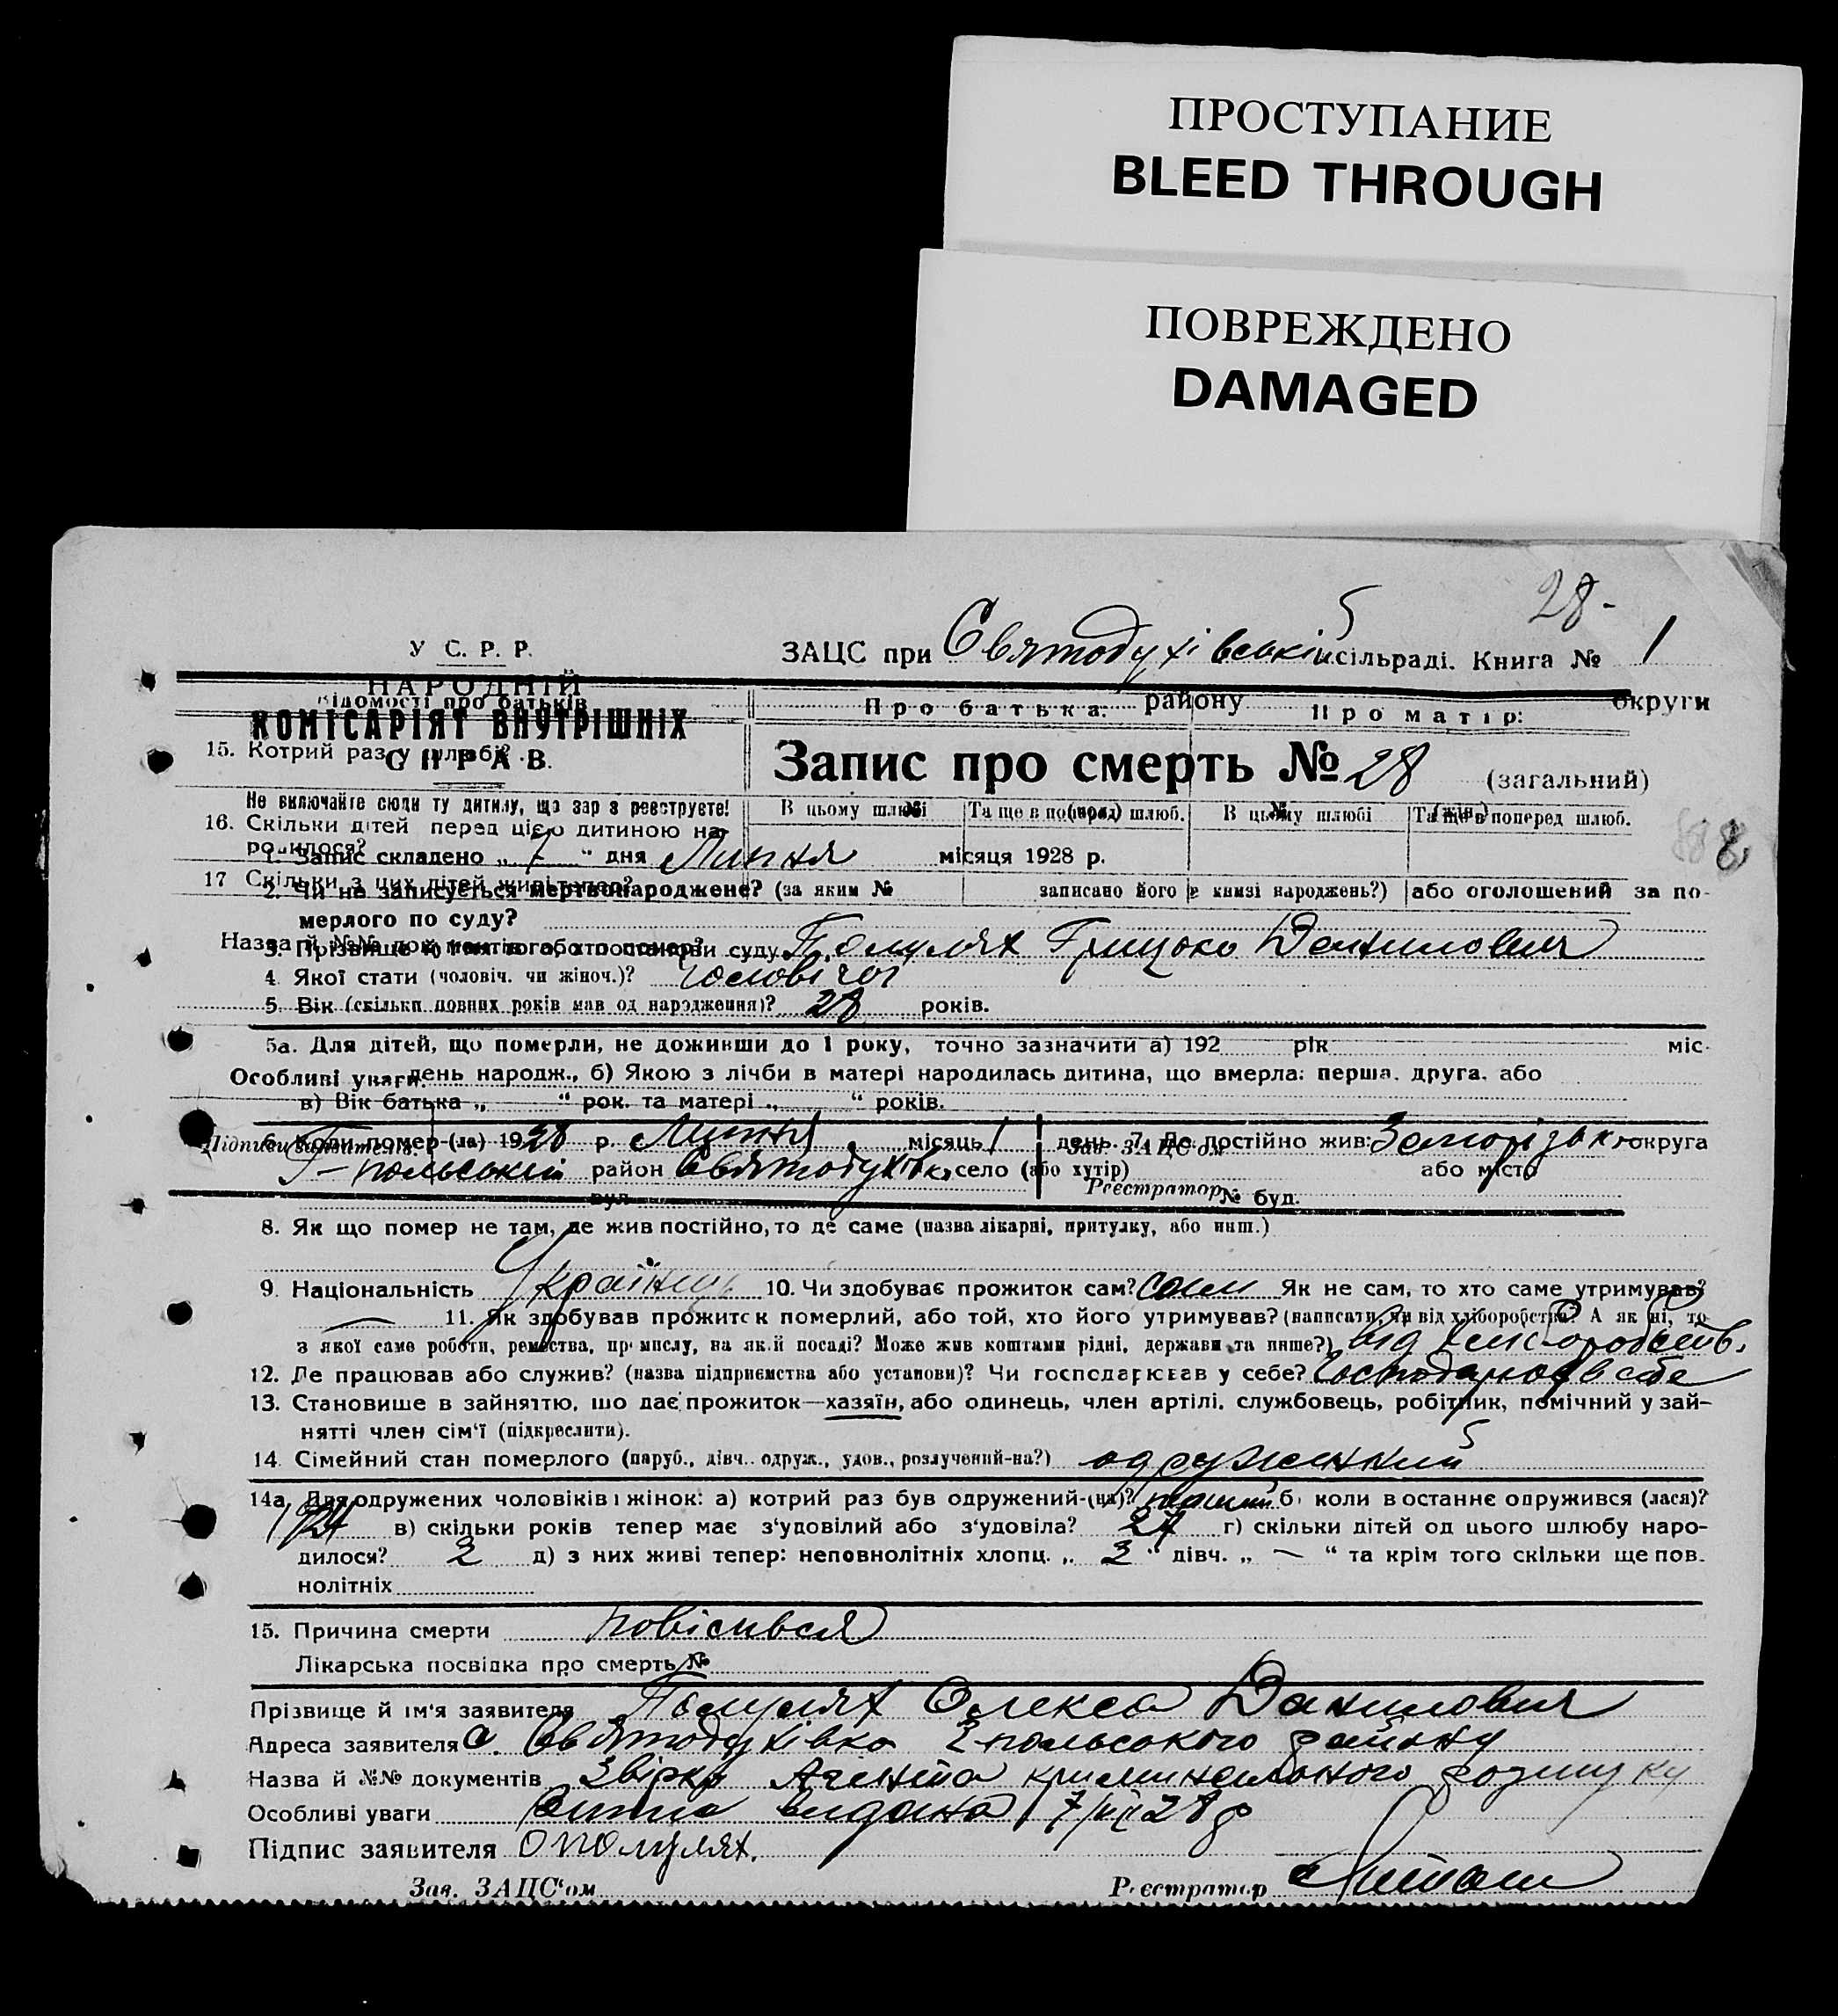 ПРОСТУПАНИЕ
BLEED THROUGH
ПОВРЕЖДЕНО
DAMAGED
28-
У С. Р. Р.
ЗАЦС при Святодухівській сільраді. Книга № 1
НАРОДНІЙ
Відомості про батьків
Про батька:
району
Про матір:
округи
КОМІСАРІЯТ ВНУТРІШНІХ
СПРАВ.
15. Котрий раз у шлюбі?
Запис про смерть № 28 (загальний)
Не включайте сюди ту дитину, що зар з реєструєте!
В цьому шлюбі
Та ще в поперед шлюб.
В цьому шлюбі
Та ще в поперед шлюб.
№
(чол.)
№
(жін.)
16. Скільки дітей перед цією дитиною на-
родилося?
1. Запис складено „ 7 “ дня Липня місяця 1928 р.
17 Скільки з цих дітей живі тепер?
2. Чи не записується мертвонароджене? (за яким № записано його в книзі народжень?) або оголошений за по-
мерлого по суду?
Назва й №№ документів або постанови суду
3. Прізвище й ім'я того, хто помер? Полулях Грицько Данилович
4. Якої стати (чоловіч. чи жіноч.)? чоловічої
5. Вік (скільки повних років мав од народження)? 28 років.
5а. Для дітей, що померли, не доживши до 1 року, точно зазначити а) 192 рік міс.
Особливі уваги:
день народж., б) Якою з лічби в матері народилась дитина, що вмерла: перша, друга, або
в) Вік батька „ “ рок. та матері „ “ років.
Підписи заявителів:
6. Коли помер-(ла) 1928 р. Липня місяць 1 день. 7. Де постійно жив: Запорізько округа
Зав. ЗАЦС'ом
Г-польський район Святодухівка село (або хутір) або місто
Реєстратор
вул. № буд.
8. Як що помер не там, де жив постійно, то де саме (назва лікарні, притулку, або инш.)
9. Національність Українець 10. Чи здобуває прожиток сам? сам Як не сам, то хто саме утримував?
— 11. Як здобував прожиток померлий, або той, хто його утримував? (написати, чи від хліборобства? А як ні, то
з якої саме роботи, ремества, промислу, на якій посаді? Може жив коштами рідні, держави та инше?) від хліборобств.
12. Де працював або служив? (назва підприємства або установи)? Чи господарював у себе? Господарював в себе
13. Становище в зайняттю, що дає прожиток—хазяїн, або одинець, член артілі, службовець, робітник, помічний у зай-
нятті член сім'ї (підкреслити).
14. Сімейний стан померлого (паруб., дівч.. одруж., удов., розлучений-на?) одружений
14а. Для одружених чоловіків і жінок: а) котрий раз був одружений-(на)? перший б) коли в останнє одружився (лася)?
1924 в) скільки років тепер має з'удовілий або з'удовіла? 27 г) скільки дітей од цього шлюбу наро-
дилося? 2 д) з них живі тепер: неповнолітніх хлопц. „ 2 “ дівч. „ — “ та крім того скільки ще пов-
нолітніх
15. Причина смерти повісився
Лікарська посвідка про смерть №
Прізвище й ім'я заявителя Полулях Олекса Данилович
Адреса заявителя с. Святодухівка Г-польського району
Назва й №№ документів Звірка Агента криминального розшуку
Особливі уваги видана 7/VII 28 р
Підпис заявителя О Полулях.
Зав. ЗАЦС'ом
Реєстратор